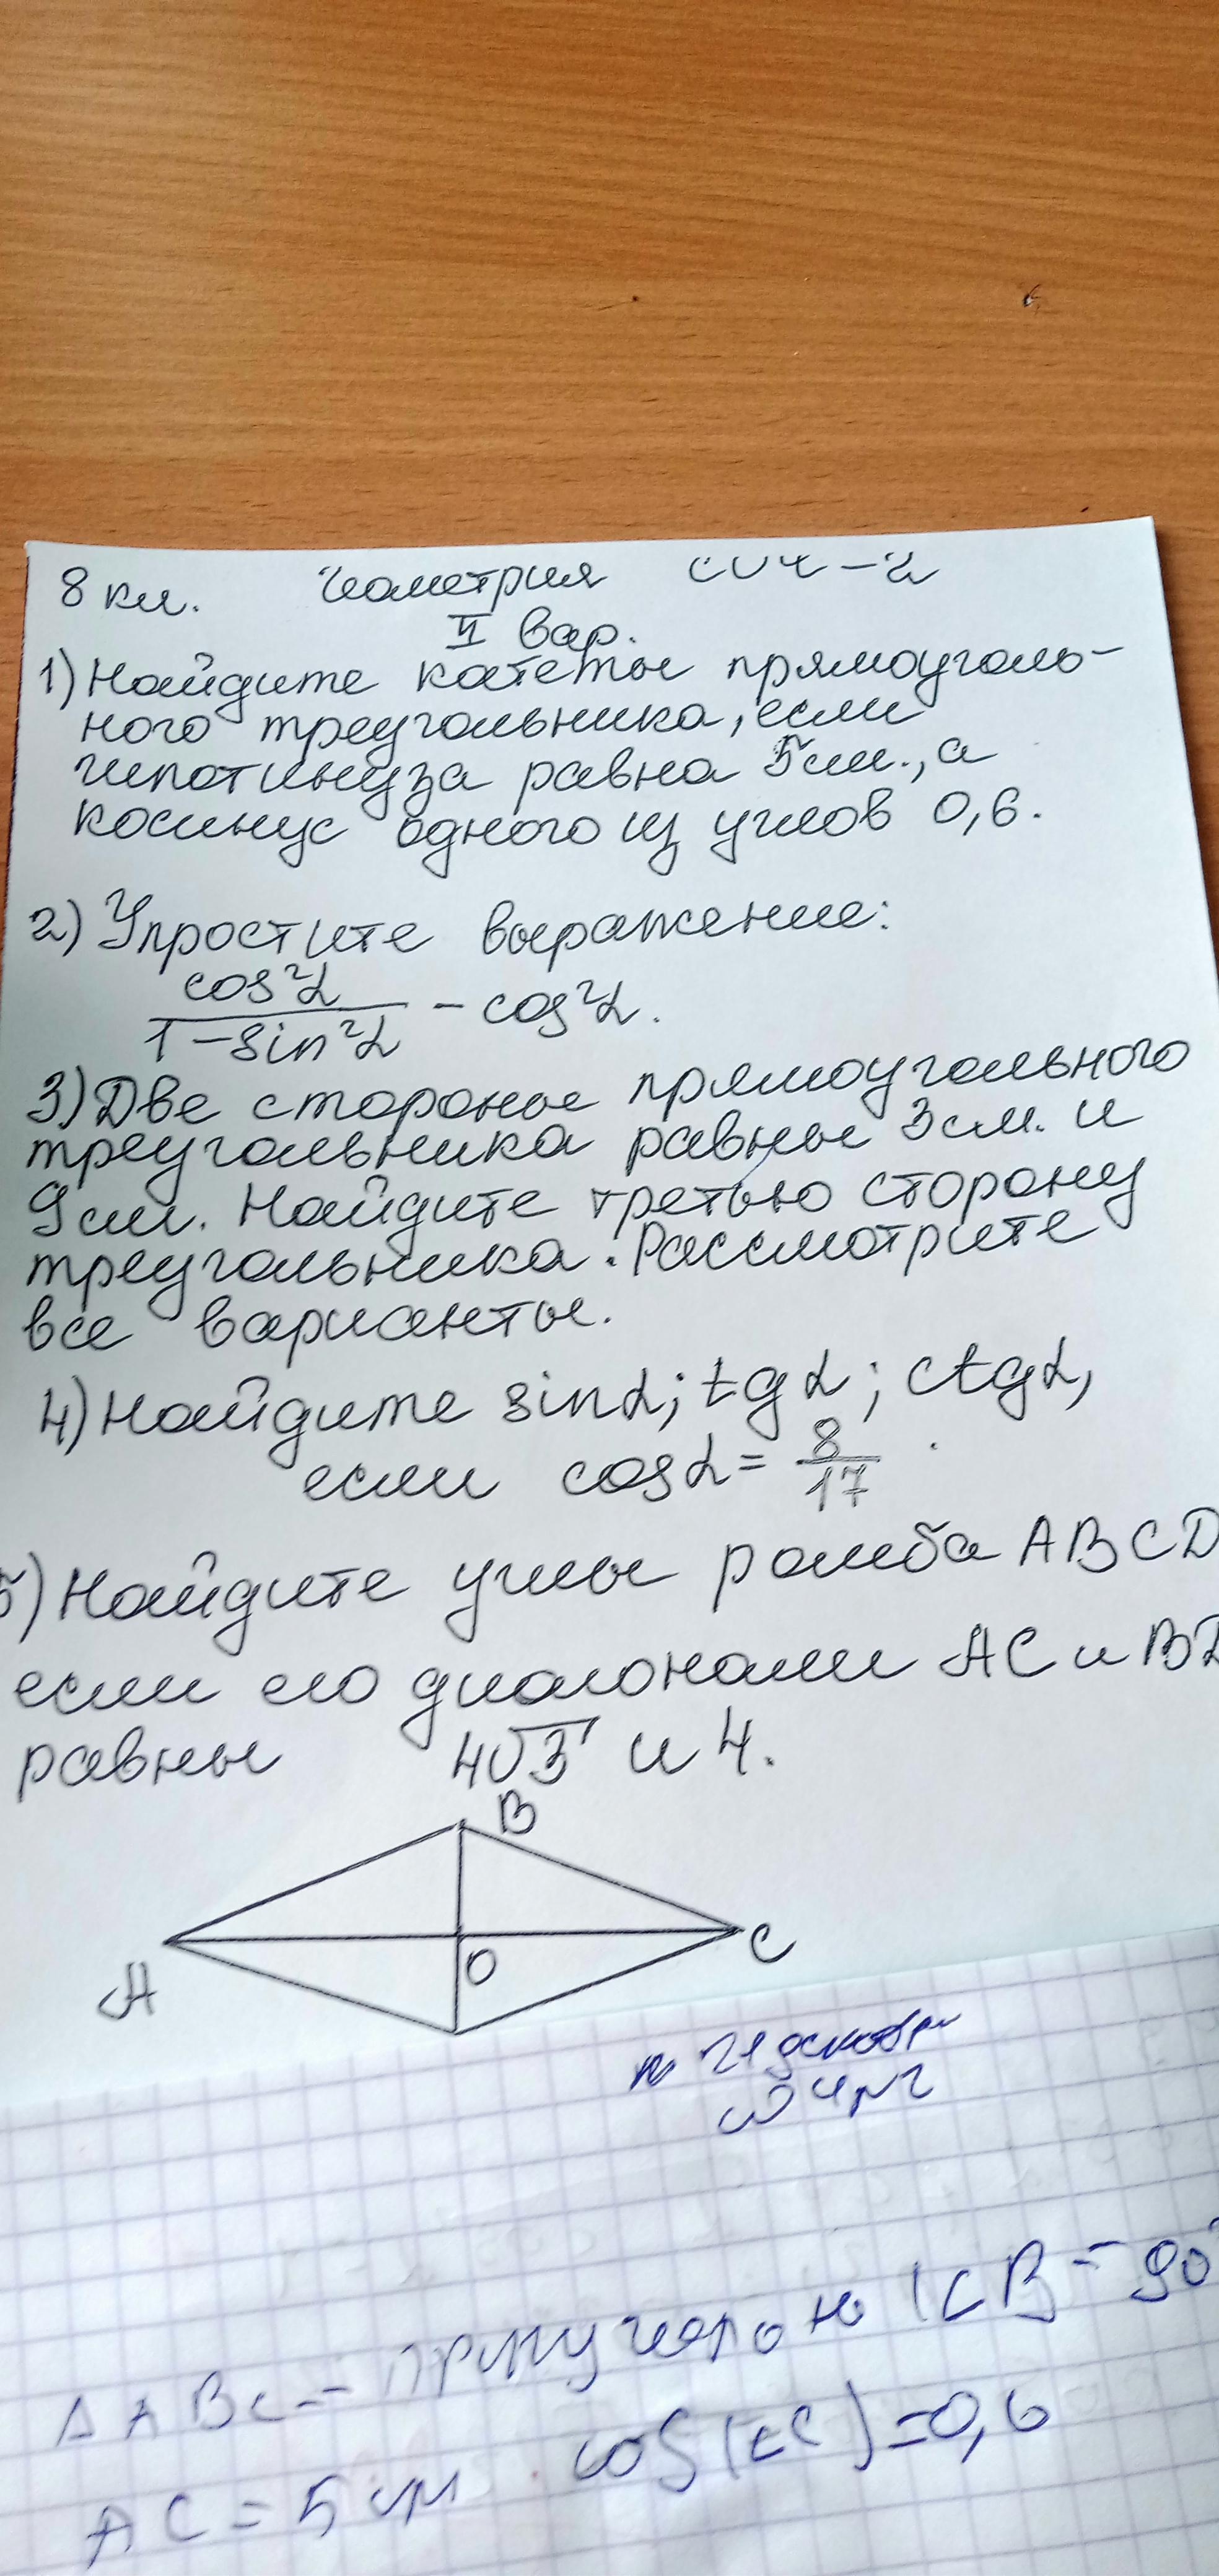 8 кл. Геометрия СОЧ-2
II вар.
1) Найдите катеты прямоуголь-
ного треугольника, если
гипотинуза равна 5см., а
косинус одного из углов 0,6.
2) Упростите выражение:
cos²α
/ (1-sin²α) - cos²α.
3) Две стороны прямоугольного
треугольника равны 3см. и
9см. Найдите третью сторону
треугольника. Рассмотрите
все варианты.
4) Найдите sinα; tgα; ctgα,
если cosα = 8/17
5) Найдите углы ромба ABCD
если его диагонали AC и BD
равны 4√3 и 4.
B
A O C
△ABC — B = 90°
AC = 5 см cos(∠C) = 0,6